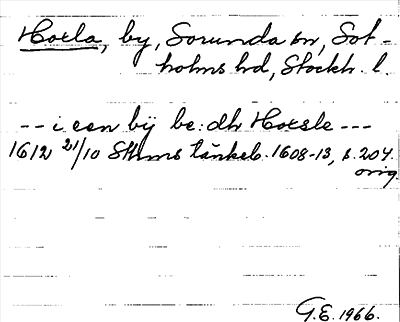 Hoxla, by, Sorunda sn, Sot-
holms hd, Stockh. l.
-- i een bÿ be:dh Hoxsle ---
1612 21/10 Sthms tänkeb. 1608-13, s. 204.
orig.
G.E. 1966.